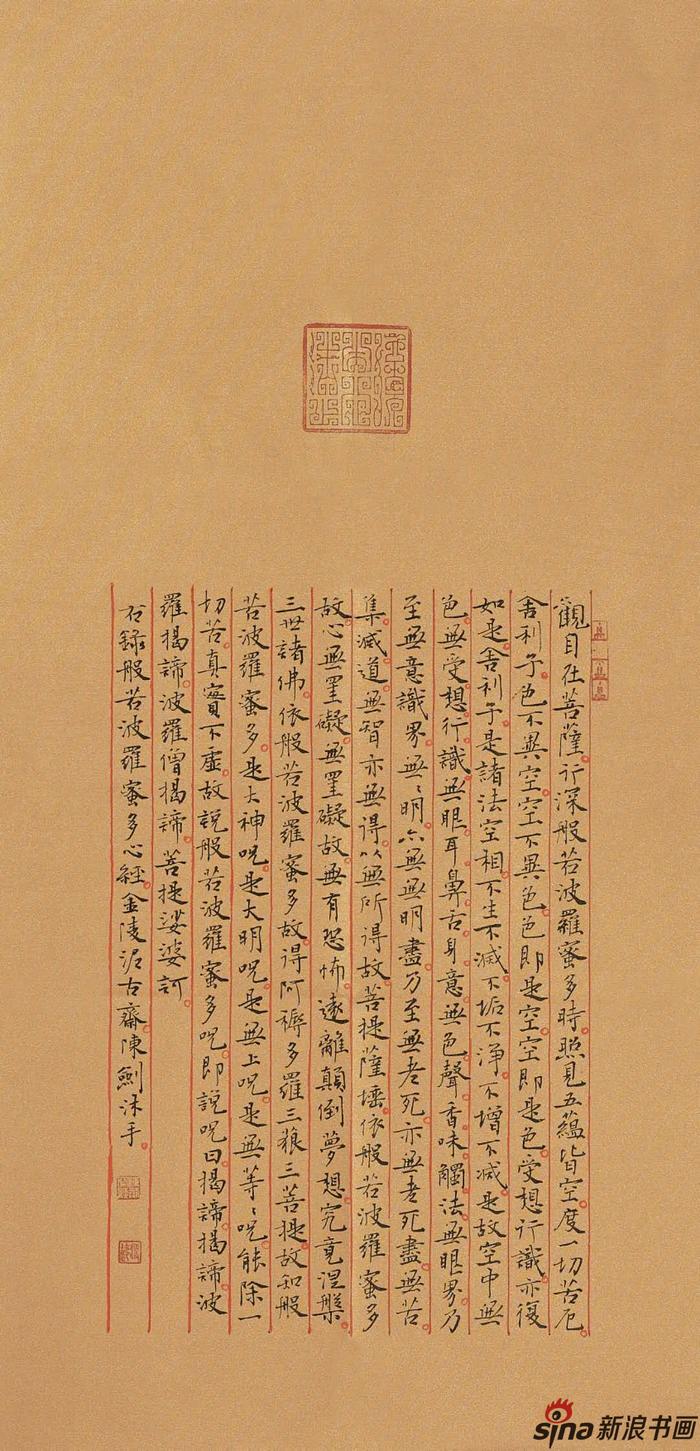 觀自在菩薩行深般若波羅蜜多時照見五蘊皆空度一切苦厄
舍利子色不異空空不異色色即是空空即是色受想行識亦復
如是舍利子是諸法空相不生不滅不垢不淨不增不減是故空中無
色無受想行識無眼耳鼻舌身意無色聲香味觸法無眼界乃
至無意識界無〻明亦無無明盡乃至無老死亦無老死盡無苦
集滅道無智亦無得以無所得故菩提薩埵依般若波羅蜜多
故心無罣礙無罣礙故無有恐怖遠離顛倒夢想究竟涅槃
三世諸佛依般若波羅蜜多故得阿耨多羅三藐三菩提故知般
若波羅蜜多是大神呪是大明呪是無上呪是無等〻呪能除一
切苦真實不虛故說般若波羅蜜多呪即說呪曰揭諦揭諦波
羅揭諦波羅僧揭諦菩提娑婆訶
右錄般若波羅蜜多心經金陵泥古齋陳劍沐手
sina新浪书画